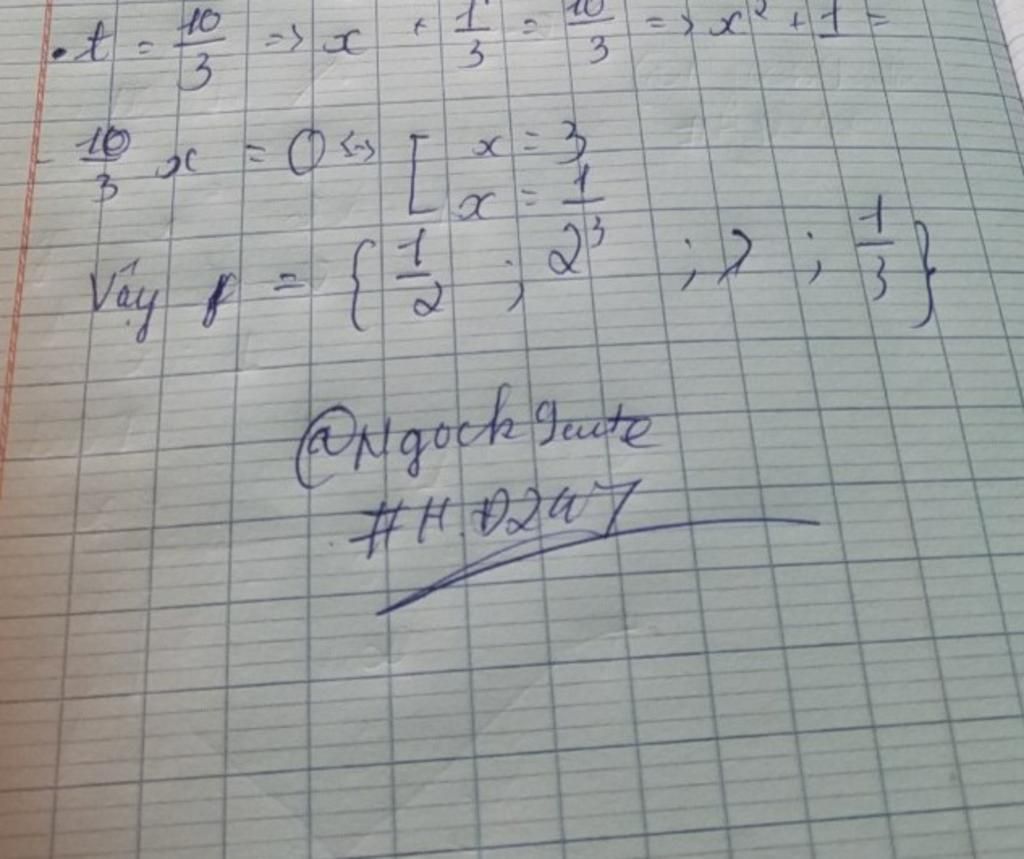 • t = 10/3 => x + 1/3 = 10/3 => x² + 1 =
- 10/3 x = 0 <-> [ x = 3
x = 1/3
Vậy f = { 1/2 ; 2 ; ; 1/3 }
@Ngock9cute
#H.D247